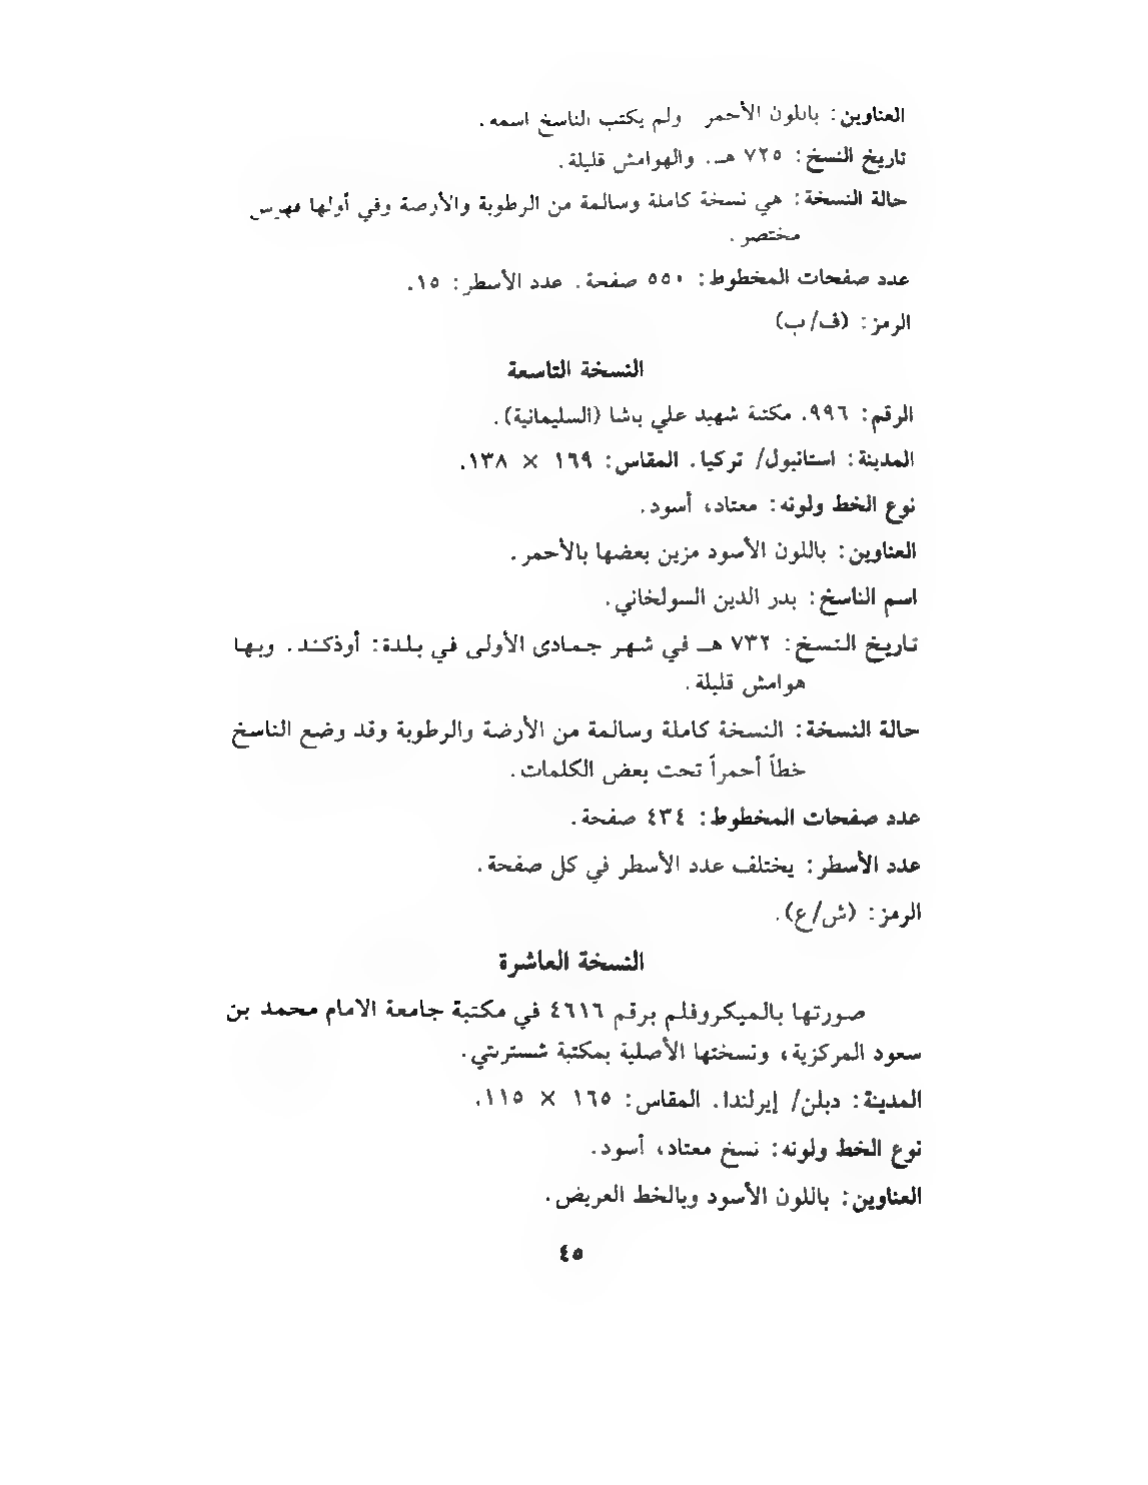 العناوين: باللون الأحمر ولم يكتب الناسخ اسمه.
تاريخ النسخ: ٧٢٥ هـ. والهوامش قليلة.
حالة النسخة: هي نسخة كاملة وسالمة من الرطوبة والأرضة وفي أولها فهرس
مختصر.
عدد صفحات المخطوط: ٥٥٠ صفحة. عدد الأسطر: ١٥.
الرمز: (ف/ب)
النسخة التاسعة
الرقم: ٩٩٦. مكتبة شهيد علي باشا (السليمانية).
المدينة: استانبول/ تركيا. المقاس: ١٦٩ × ١٣٨.
نوع الخط ولونه: معتاد، أسود.
العناوين: باللون الأسود مزين بعضها بالأحمر.
اسم الناسخ: بدر الدين السولخاني.
تاريخ النسخ: ٧٣٢ هـ في شهر جمادى الأولى في بلدة: أوذكند. وبها
هوامش قليلة.
حالة النسخة: النسخة كاملة وسالمة من الأرضة والرطوبة وقد وضع الناسخ
خطاً أحمراً تحت بعض الكلمات.
عدد صفحات المخطوط: ٤٣٤ صفحة.
عدد الأسطر: يختلف عدد الأسطر في كل صفحة.
الرمز: (ش/ع).
النسخة العاشرة
صورتها بالميكروفلم برقم ٤٦١٦ في مكتبة جامعة الامام محمد بن
سعود المركزية، ونسختها الأصلية بمكتبة شستربتي.
المدينة: دبلن/ إيرلندا. المقاس: ١٦٥ × ١١٥.
نوع الخط ولونه: نسخ معتاد، أسود.
العناوين: باللون الأسود وبالخط العريض.
٤٥